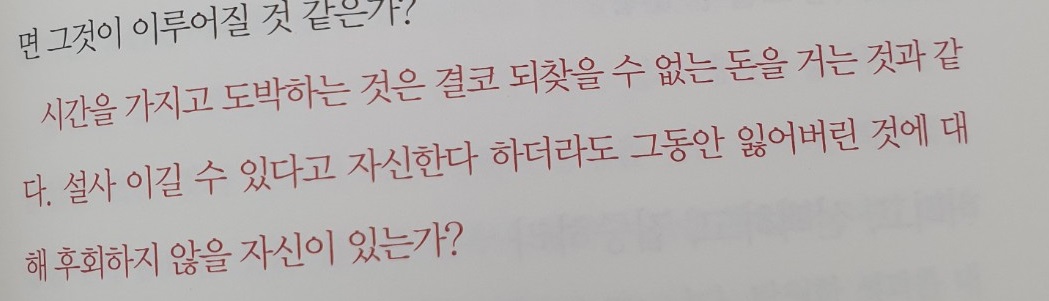 면 그것이 이루어질 것 같은가?
시간을 가지고 도박하는 것은 결코 되찾을 수 없는 돈을 거는 것과 같
다. 설사 이길 수 있다고 자신한다 하더라도 그동안 잃어버린 것에 대
해 후회하지 않을 자신이 있는가?